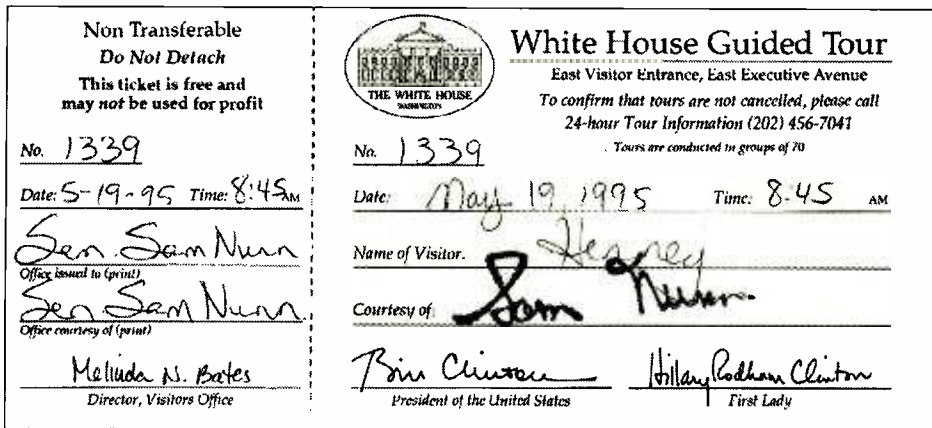 Non Transferable
Do Not Detach
This ticket is free and
may not be used for profit
No. 1339
Date: 5-19-95 Time: 8:45 AM
Sen Sam Nunn
Office issued to (print)
Sen Sam Nunn
Office courtesy of (print)
Melinda N. Bates
Director, Visitors Office
THE WHITE HOUSE
WASHINGTON
White House Guided Tour
East Visitor Entrance, East Executive Avenue
To confirm that tours are not cancelled, please call
24-hour Tour Information (202) 456-7041
Tours are conducted in groups of 70
No. 1339
Date: May 19, 1995 Time: 8:45 AM
Name of Visitor.
Courtesy of: Sam Nunn
Bill Clinton Hillary Rodham Clinton
President of the United States First Lady